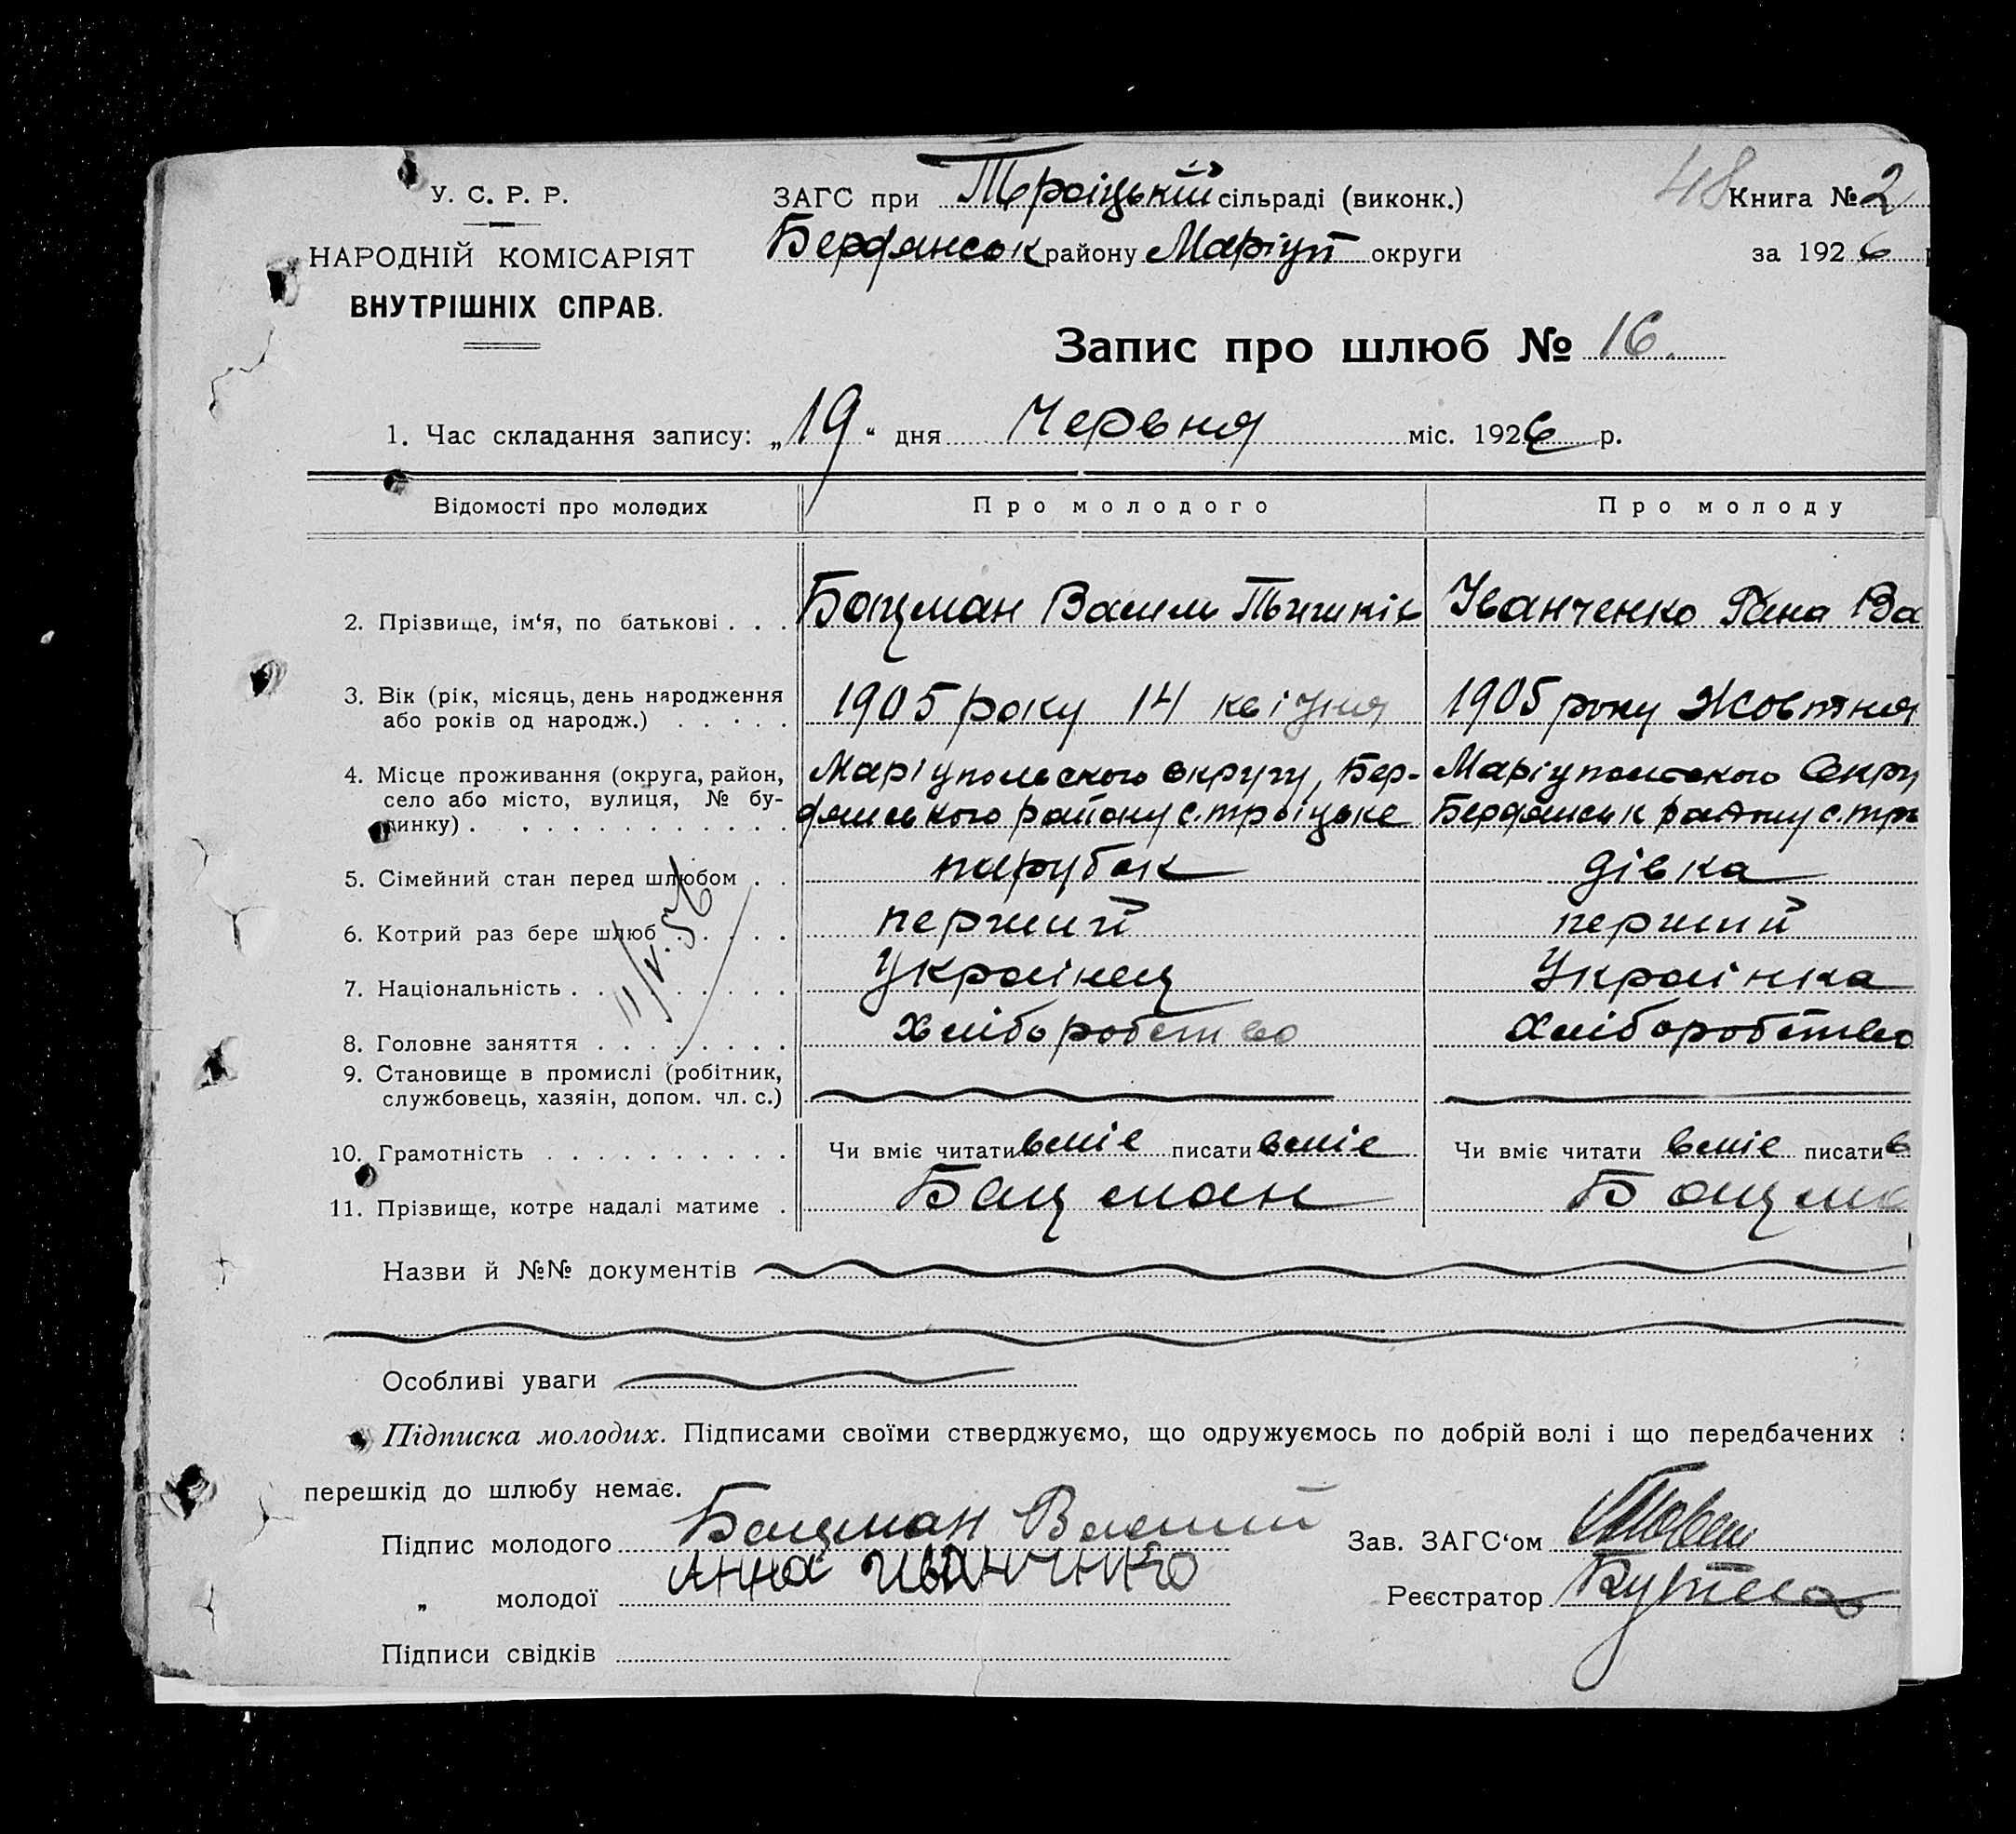 У. С. Р. Р.
НАРОДНІЙ КОМІСАРІЯТ
ВНУТРІШНІХ СПРАВ.
ЗАГС при Троіцькій сільраді (виконк.)
Бердянськ району Маріуп округи
48 Книга № 2
за 1926
Запис про шлюб № 16.
1. Час складання запису: „19“ дня Червня міс. 1926 р.
Відомості про молодих Про молодого Про молоду
2. Прізвище, ім‘я, по батькові . . . Бацман Василь Іванченко Гана Ва
3. Вік (рік, місяць, день народження
або років од народж.) . . . . . 1905 року 14 квітня 1905 року Жовтня
4. Місце проживання (округа, район, Маріупольского округу, Бер- Маріупольского Окру
село або місто, вулиця, № бу-
динку) . . . . . . . . . . . . дянського району с. троіцьке Бердянськ району с. тро
5. Сімейний стан перед шлюбом . . парубок дівка
6. Котрий раз бере шлюб . . . . . перший перший
7. Національність . . . . . . . . . Украінец Украінка
8. Головне заняття . . . . . . . . хліборобство хліборобство
11/V.56
9. Становище в промислі (робітник,
службовець, хазяін, допом. чл. с.)
10. Грамотність . . . . . . . . . . Чи вміє читати вміє писати вміє Чи вміє читати вміє писати в
11. Прізвище, котре надалі матиме . Бацман Бацма
Назви й №№ документів
Особливі уваги
Підписка молодих. Підписами своїми стверджуємо, що одружуємось по добрій волі і що передбачених
перешкід до шлюбу немає.
Підпис молодого Бацман Василий Зав. ЗАГС‘ом
„ молодої Анна Иванчинко Реєстратор
Підписи свідків